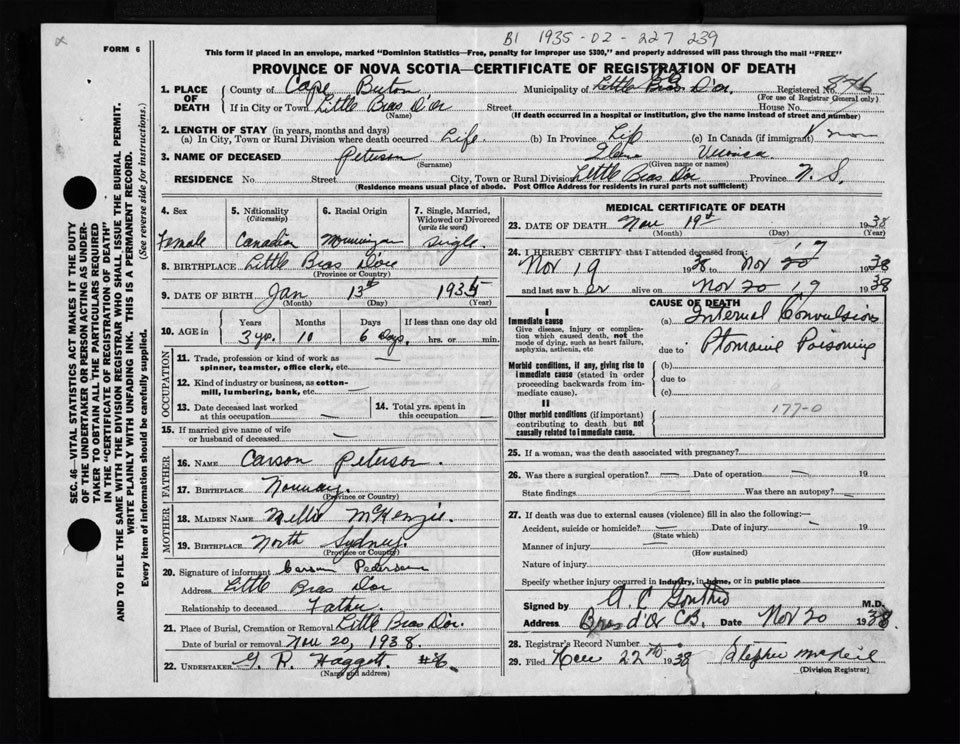 B1 1935-02-227239
FORM 6
This form if placed in an envelope, marked "Dominion Statistics—Free, penalty for improper use $300," and properly addressed will pass through the mail "FREE"
PROVINCE OF NOVA SCOTIA—CERTIFICATE OF REGISTRATION OF DEATH
1. PLACE OF DEATH
County of Cape Breton Municipality of Little Bras D'or. Registered No. 876
(For use of Registrar General only)
If in City or Town Little Bras D'or Street House No.
(Name) (If death occurred in a hospital or institution, give the name instead of street and number)
2. LENGTH OF STAY (in years, months and days)
(a) In City, Town or Rural Division where death occurred Life. (b) In Province Life (c) In Canada (if immigrant)
3. NAME OF DECEASED Peterson Veronica
(Surname) (Given name or names)
RESIDENCE No. Street City, Town or Rural Division Little Bras D'or Province N. S.
(Residence means usual place of abode. Post Office Address for residents in rural parts not sufficient)
4. Sex
Female
5. Nationality
(Citizenship)
Canadian
6. Racial Origin
7. Single, Married, Widowed or Divorced
(write the word)
Single
8. BIRTHPLACE Little Bras D'or
(Province or Country)
9. DATE OF BIRTH Jan 13th 1935
(Month) (Day) (Year)
10. AGE in Years Months Days If less than one day old
3 yrs. 10 6 days. hrs. or min.
OCCUPATION
11. Trade, profession or kind of work as spinner, teamster, office clerk, etc. —
12. Kind of industry or business, as cotton-mill, lumbering, bank, etc. —
13. Date deceased last worked at this occupation —
14. Total yrs. spent in this occupation —
15. If married give name of wife or husband of deceased —
FATHER
16. NAME Carson Peterson.
17. BIRTHPLACE Norway.
(Province or Country)
MOTHER
18. MAIDEN NAME Nellie McKenzie.
19. BIRTHPLACE North Sydney.
(Province or Country)
20. Signature of informant Carson Pedersen
Address Little Bras D'or
Relationship to deceased Father.
21. Place of Burial, Cremation or Removal Little Bras D'or.
Date of burial or removal Nov 20, 1938.
22. UNDERTAKER G. R. Haggett
(Name and address)
MEDICAL CERTIFICATE OF DEATH
23. DATE OF DEATH Nov 19th 1938
(Month) (Day) (Year)
24. I HEREBY CERTIFY that I attended deceased from:
Nov 19 1938 to Nov 20 1938
and last saw her alive on Nov 20 19 1938
CAUSE OF DEATH
I
Immediate cause
Give disease, injury or complication which caused death, not the mode of dying, such as heart failure, asphyxia, asthenia, etc
(a) Internal Convulsions
due to Ptomaine Poisoning
Morbid conditions, if any, giving rise to immediate cause (stated in order proceeding backwards from immediate cause).
(b)
due to
(c)
II
Other morbid conditions (if important) contributing to death but not causally related to immediate cause.
177-0
25. If a woman, was the death associated with pregnancy?
26. Was there a surgical operation? — Date of operation — 19
State findings Was there an autopsy? —
27. If death was due to external causes (violence) fill in also the following:—
Accident, suicide or homicide? — Date of injury — 19
(State which)
Manner of injury —
(How sustained)
Nature of injury
Specify whether injury occurred in industry, in home, or in public place
Signed by M.D.
Address Bras d'Or C.B. Date Nov 20 1938
28. Registrar's Record Number
29. Filed Nov 22nd 1938 Stephen McNeil
(Division Registrar)
SEC. 46—VITAL STATISTICS ACT MAKES IT THE DUTY
OF THE UNDERTAKER OR PERSON ACTING AS UNDER-
TAKER TO OBTAIN ALL THE PARTICULARS REQUIRED
IN THE "CERTIFICATE OF REGISTRATION OF DEATH"
AND TO FILE THE SAME WITH THE DIVISION REGISTRAR WHO SHALL ISSUE THE BURIAL PERMIT.
WRITE PLAINLY WITH UNFADING INK. THIS IS A PERMANENT RECORD.
Every item of information should be carefully supplied. (See reverse side for instructions.)